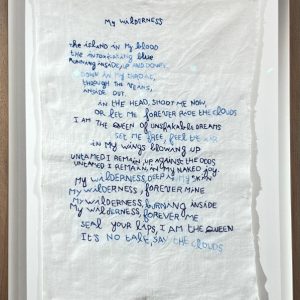 My Wilderness
the island in my blood
the intoxicating blue
running inside, up and down,
down in my throat,
through the veins,
inside out.
in the head, shoot me now,
or let me forever ride the clouds
I am the queen of unspeakable dreams
set me free, feel the
in my wings blowing up
untamed I remain, up against the odds
untamed I remain, in my naked joy.
My wilderness, deep in my skin
My wilderness, forever mine
My wilderness, burning inside
My wilderness, forever me
Seal your lips, I am the queen
It's no talk, say the clouds